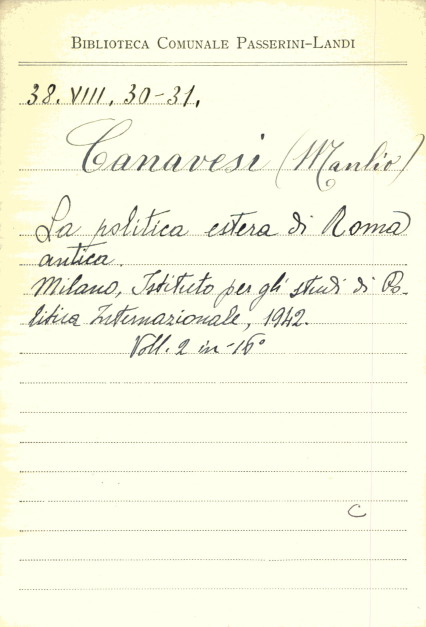 BIBLIOTECA COMUNALE PASSERINI-LANDI
38. VIII. 30-31.
Canavesi (Manlio)
La politica estera di Roma
antica.
Milano, Istituto per gli studi di Po-
litica Internazionale, 1942.
Voll. 2 in-16°
C